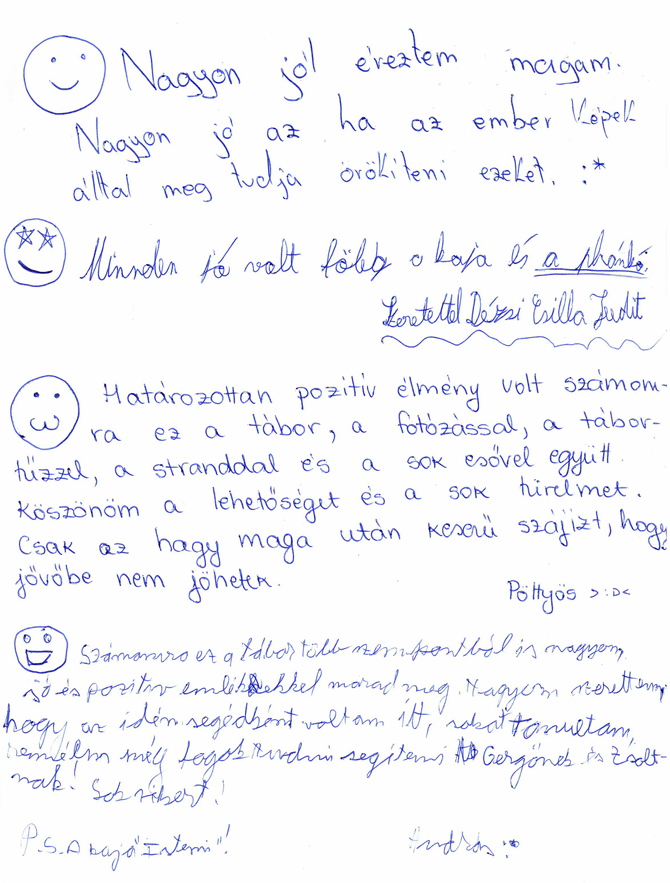 Nagyon jól éreztem magam.
Nagyon jó az ha az ember képek
által meg tudja örökíteni ezeket. :*
Minnden jó volt főleg a kaja és a phánkó.
Szeretettel Dézsi Csilla Judit
Határozottan pozitív élmény volt számom-
ra ez a tábor, a fotózással, a tábor-
tűzzel, a stranddal és a sok esővel együtt.
Köszönöm a lehetőséget és a sok türelmet.
Csak az hagy maga után keserű szájízt, hogy
jövőbe nem jöhetek.
Pöttyös >:D<
Számomra ez a tábor több szempontból is nagyon
jó és pozitív emlékekkel marad meg. Nagyon szerettem,
hogy az idén segédként voltam itt, sokat tanultam,
remélem még fogok tudni segíteni Gergőnek és Zsolt-
nak! Sok sikert!
P.S. A kajá "Isteni"!
András :*